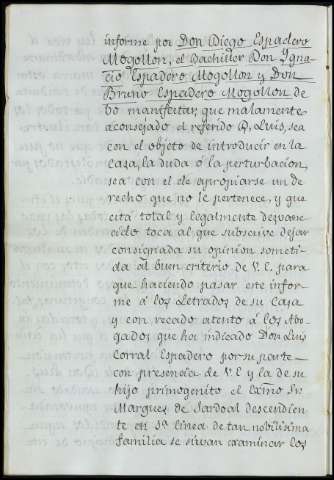 informe por Don Diego Espadero
Mogollon, el Bachiller Don Ygna-
cio Espadero Mogollon y Don
Bruno Espadero Mogollon de
bo manifestar, que malamente
aconsejado el referido D. Luis, sea
con el objeto de introducir en la
casa, la duda ó la perturbacion,
sea con el de apropiarse un de
recho que no le pertenece, y que
está total y legalmente desvane
cido toca al que subscrive dejar
consignada su opinion someti-
da al buen criterio de V. E. para
que haciendo pasar este infor
me á los Letrados de su Casa
y con recado atento á los Abo-
gados que ha indicado Don Luis
Corral Espadero por su parte-
con presencia de V. E. y la de su
hijo primogenito el Exmo Sr
Marques de Sardoal descendien
te en 5ª linea de tan nobilisima
familia se sirvan examinar los